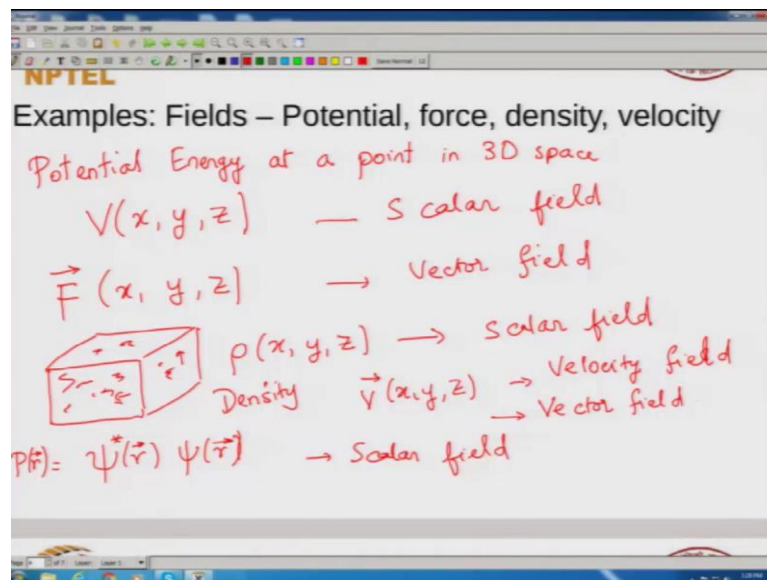 NPTEL
Examples: Fields – Potential, force, density, velocity
Potential Energy at a point in 3D space
V(x, y, z) — Scalar field
F⃗ (x, y, z) → Vector field
ρ(x, y, z) → Scalar field
Density v⃗ (x, y, z) → Velocity field
→ Vector field
P(r⃗) = ψ*(r⃗) ψ(r⃗) → Scalar field